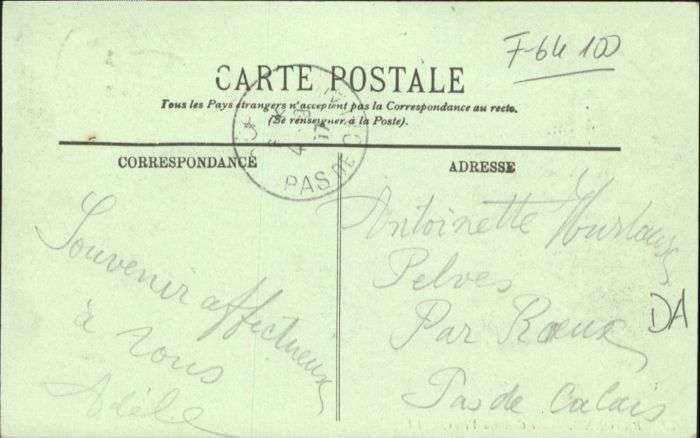 F-64 100
CARTE POSTALE
Tous les Pays étrangers n'acceptent pas la Correspondance au recto.
(Se renseigner à la Poste).
PAS DE C
CORRESPONDANCE
ADRESSE
Souvenir affectueux
à vous
Adèle
Antoinette
Pelves
Par Rœux
Pas de Calais
DA